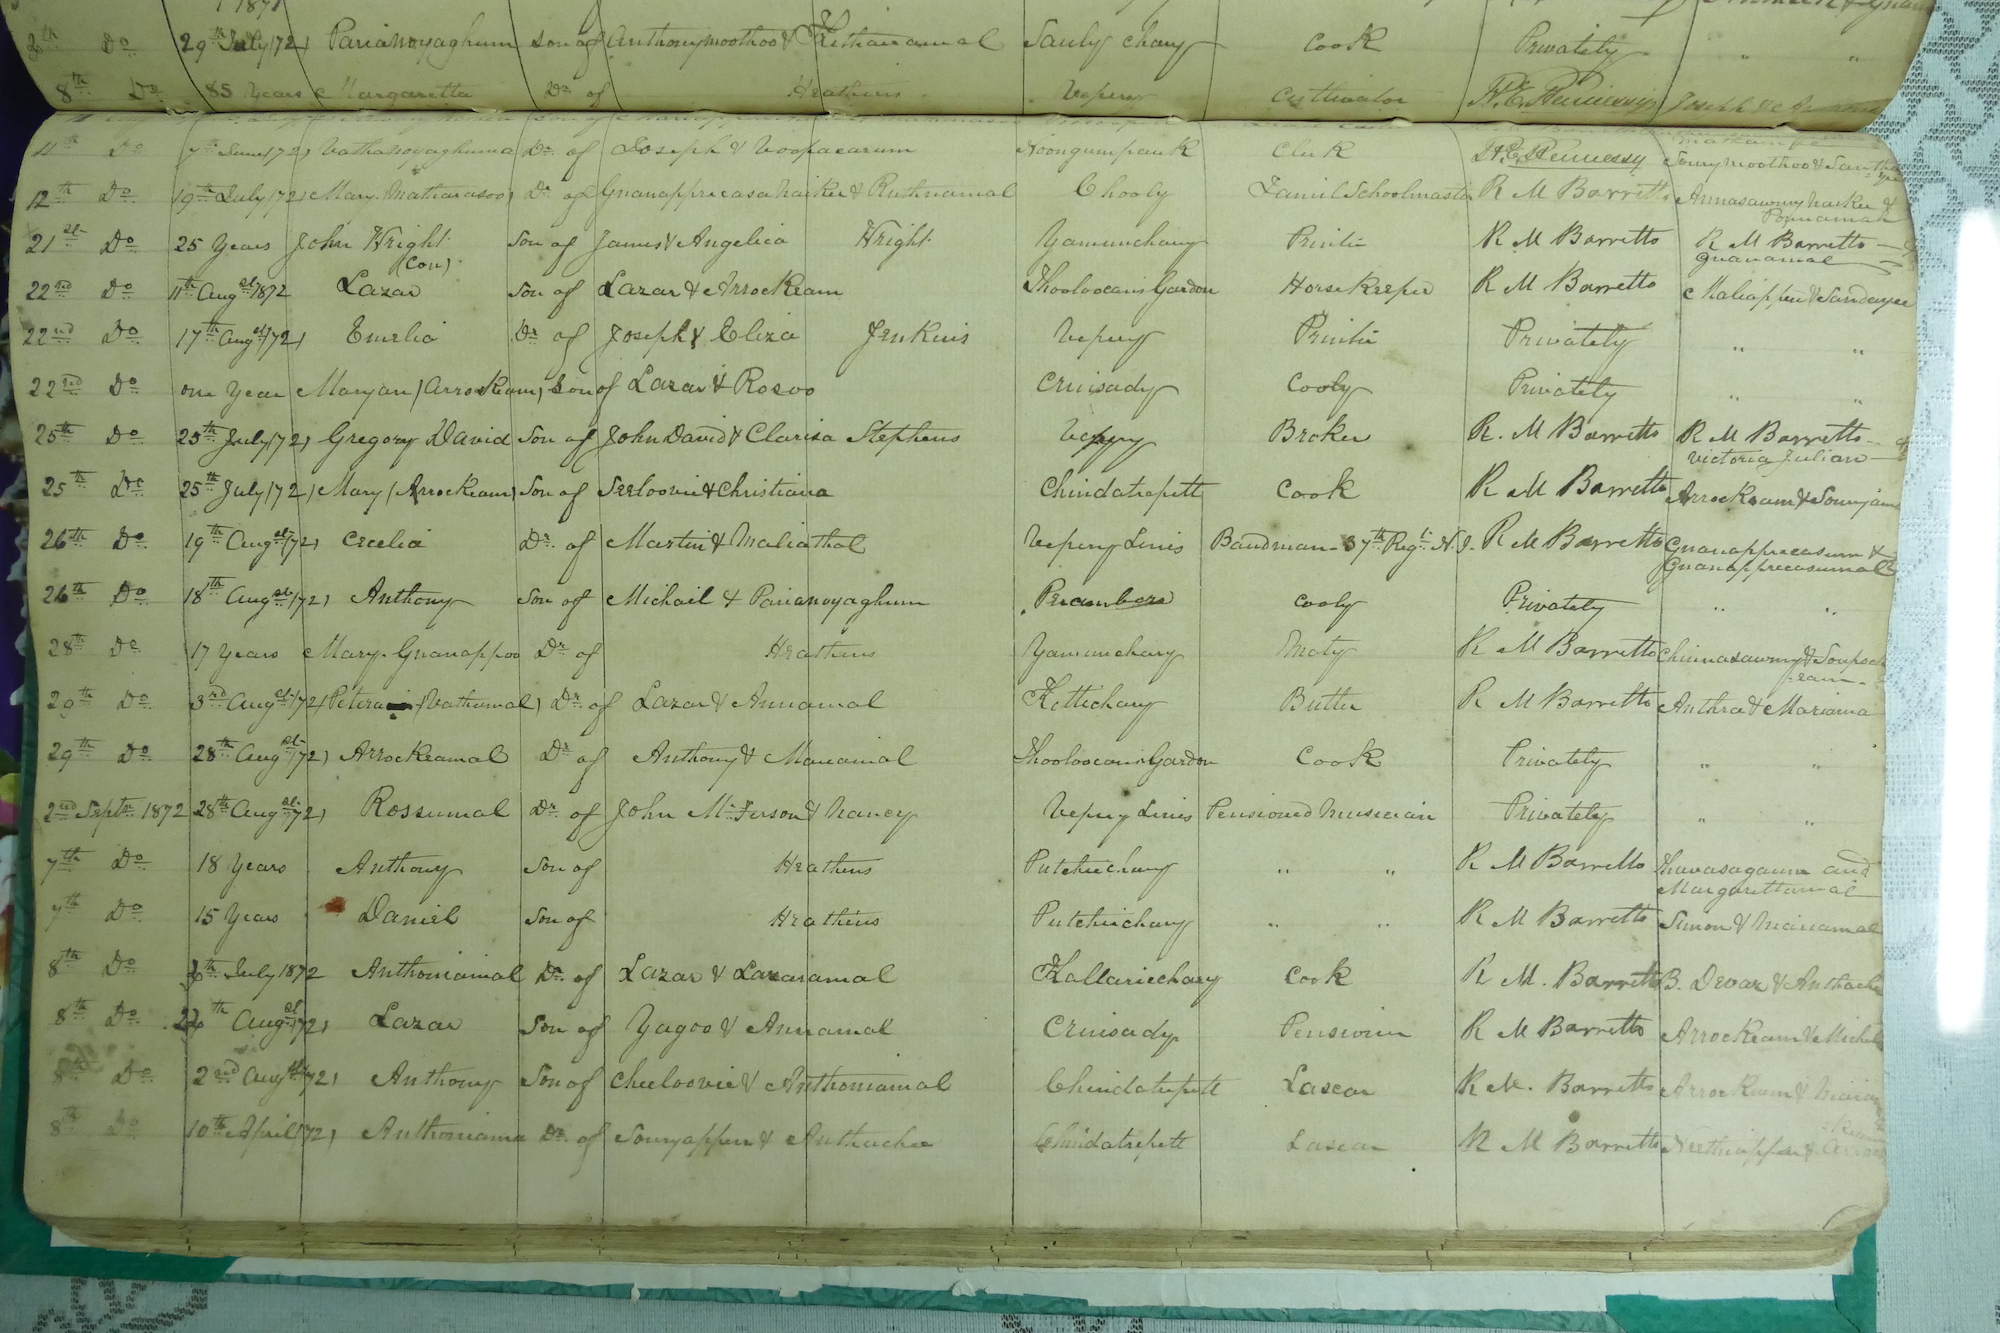 29th July 72, Parianoyaghum Son of Anthonymoothoo & Kethariamal Sauly chary Cook Privately " "
8th Do 85 Years Margaretta Dr of Heathens Vepery Cultivator H. E. Hennessy
11th Do 7th June 172, Vathanoyaghuma Dr of Joseph & Noongumpauk Clerk H. E. Hennessy Sourymoothoo &
12th Do 19th July 172, Mary Dr of Gnanappracasa Naiker & Ruthnamal Chooly Tamil Schoolmaster R M Barretto Annasawmy Naiker &
Ponnamah
21st Do 25 Years John Wright Son of James & Angelica Wright Yamunchary Printer R M Barretto R M Barretto
(Con) Gnanamal
22nd Do 11th Augst 1872 Lazar Son of Lazar & Arrockeam Garden Horse Keeper R M Barretto Maliappen & Sandayee
22nd Do 17th Augst 72, Emelia Dr of Joseph & Eliza Jenkins Vepery Printer Privately " "
22nd Do one Year Maryan (Arrokeam) Son of Lazar & Rosoo Cruisady Cooly Privately " "
25th Do 25th July 172, Gregory David Son of John David & Clarisa Stephens Vepery Broker R. M Barretto R M Barretto
Victoria Julian
25th Do 25th July 172, Mary (Arrockeam) Son of Seeloovie & Christiana Chindatripett Cook R M Barretto Arrockeam &
26th Do 19th Augst 172, Cecelia Dr of Martin & Maliathal Vepery Lines Bandman 37th Regt N. I. R M Barretto Gnanappracasum &
Gnanappracasumal
26th Do 18th Augst 172, Anthony Son of Michail & Parianoyaghum Perambore Cooly Privately " "
28th Do 17 Years Mary Gnanappoo Dr of Heathens Yamunchary Maty R M Barretto Chinnasawmy &
29th Do 3rd Augst 172, (Vathumal) Dr of Lazar & Annamal Kottichary Butler R M Barretto Anthra & Mariama
29th Do 28th Augst 72, Arrockeamal Dr of Anthony & Mariamal Garden Cook Privately " "
2nd Septr 1872 28th Augst 72, Rossumal Dr of John McFerson & Nancy Vepery Lines Pensioned Musician Privately " "
7th Do 18 Years Anthony Son of Heathens Putchiechary " " R M Barretto Thavasagauni and
Margarettamal
7th Do 15 Years Daniel Son of Heathens Putchiechary " " R M Barretto Simon & Mariamal
8th Do July 1872 Anthoniamal Dr of Lazar & Lazaramal Kallariechary Cook R M. Barretto B. Devar &
8th Do Augst 72, Lazar Son of Yagoo & Annamal Cruisady Pensioner R M Barretto Arrockeam &
8th Do 2nd Augst 172, Anthony Son of Cheeloovie & Anthoniamal Chindatripett Lascar R M. Barretto Arrockeam &
8th Do 10th April 172, Anthoniama Dr of Souryappen & Anthachee Chindatripett Lascar R M Barretto